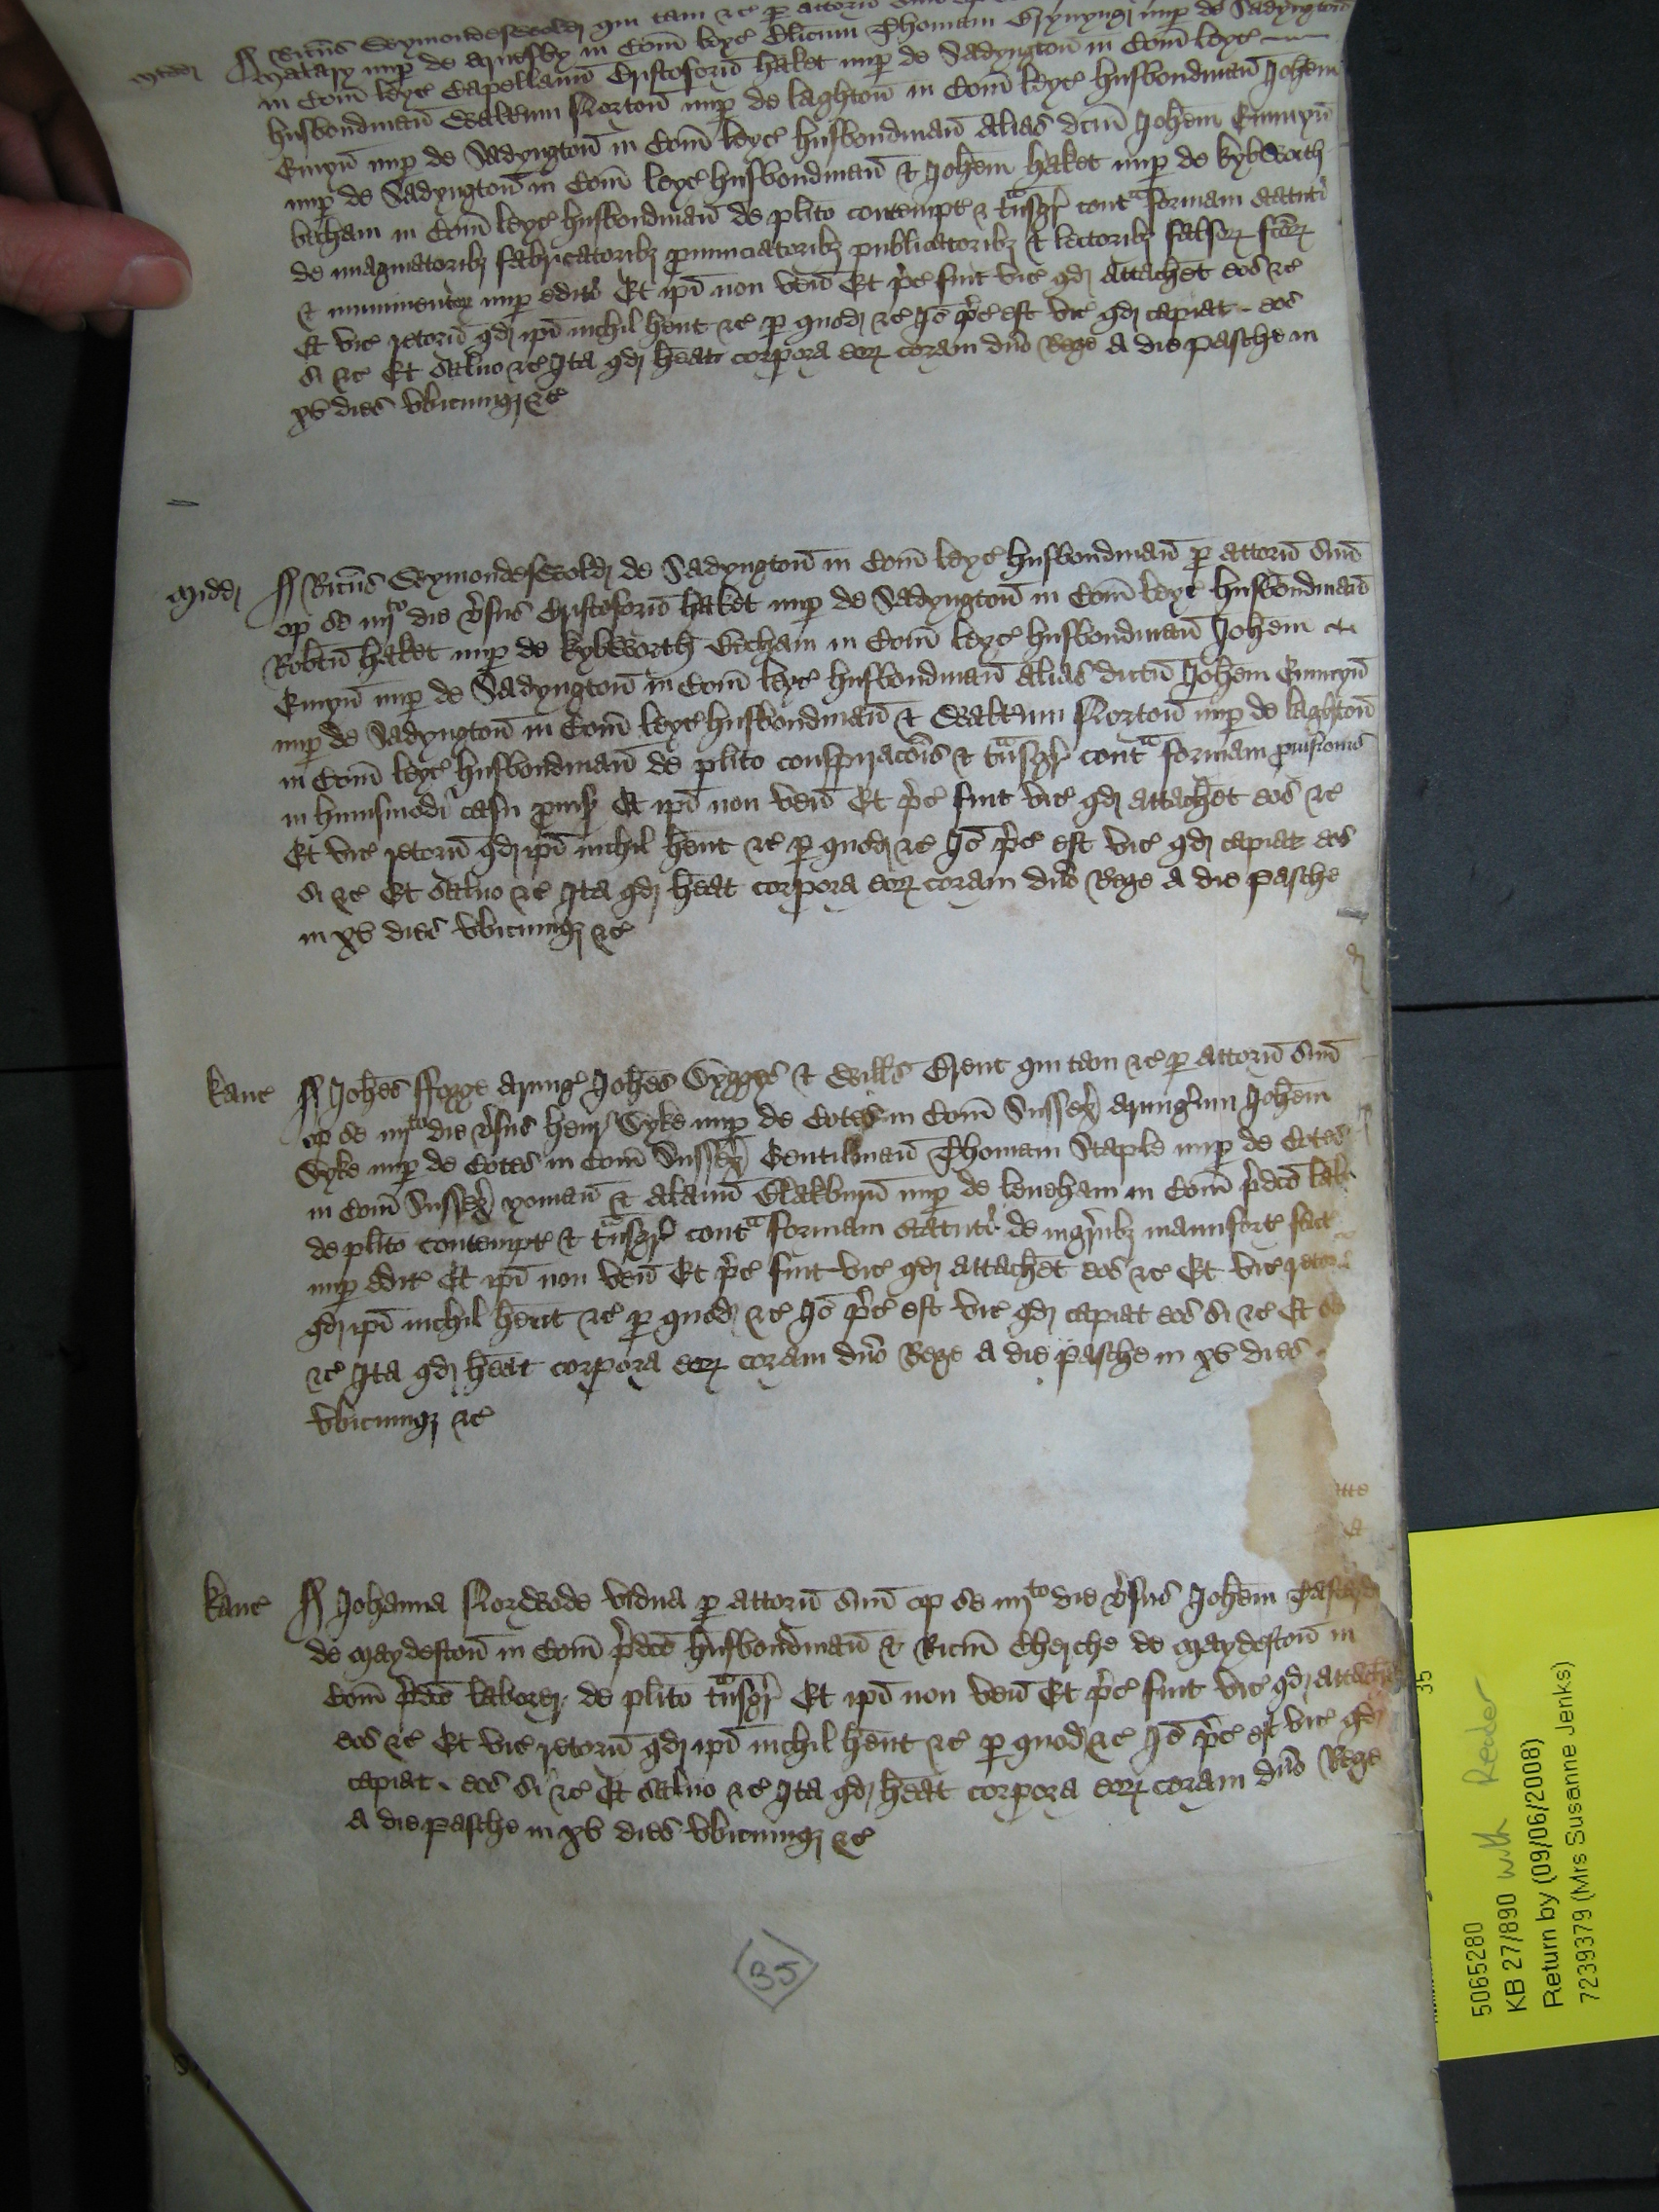 Midd Ricūs Wymondeswold qui tam &c p attorn̄ suū op se
Malary nup de Arnesby in Com̄ Leyc Clicum Thomam Grynyng nup de Sadyngton̄
in Com̄ Leyc Capellanū Cristoforū Haket nup de Sadyngton̄ in Com̄ Leyc
husbondman̄ Walt̄um Norton̄ nup de Laghton̄ in Com̄ Leyc husbondman̄ Joh̄em
Emyn̄ nup de Sadyngton̄ in Com̄ Leyc husbondman̄ alias dc̄m Joh̄em Emmyn̄
nup de Sadyngton̄ in Com̄ Leyc husbondman̄ & Joh̄em Haket nup de Kybworth
Becham in Com̄ Leyc husbondman̄ de pl̄ito contempt & t̄nsgr̄ contᵃ formam statuti
de imaginatorib3 fabricatorib3 pnunciatorib3 publicatorib3 & lectorib3 falsoꝝ fc̄oꝝ
& munimentoꝝ nup editⁱ Et ip̄i non ven̄ Et p̄c fuit vic qd attach̄et eos &c
Et vic retorn̄ qd ip̄i nichil h̄ent &c p quod &c Iō p̄c est vic qd capiat eos
si &c Et saluo &c Ita qd h̄eat corpora eoꝝ coram dn̄o Rege a die pasche in
xv dies vbicumq3 &c
Midd Ricūs Wymondeswold de Sadyngton̄ in Com̄ Leyc husbondman̄ p attorn̄ suū
op se iiijᵗᵒ die v̄sus Cristoforū Haket nup de Sadyngton̄ in Com̄ Leyc husbondman̄
Rob̄tū Haket nup de Kybworth Becham in Com̄ Leyc husbondman̄ Joh̄em
Emyn̄ nup de Sadyngton̄ in Com̄ Leyc husbondman̄ alias dictū Joh̄em Emmyn̄
nup de Sadyngton̄ in Com̄ Leyc husbondman̄ & Walt̄um Norton̄ nup de Laghton̄
in Com̄ Leyc husbondman̄ de pl̄ito conspirac̄ois & t̄nsgr̄ contᵃ formam puisionis
in huiusmodi casu puis Et ip̄i non ven̄ Et p̄c fuit vic qd attach̄et eos &c
Et vic retorn̄ qd ip̄i nichil h̄ent &c p quod &c Iō p̄c est vic qd capiat eos
si &c Et saluo &c Ita qd h̄eat corpora eoꝝ coram dn̄o Rege a die pasche
in xv dies vbicumq3 &c
Kanc Joh̄es ffogge armig Joh̄es Sygges & Will̄s Brent qui tam &c p attorn̄ suū
op se iiijᵗᵒ die v̄sus Henr̄ Wyke nup de Cotes in Com̄ Sussex̄ armiḡum Joh̄em
Wyke nup de Cotes in Com̄ Sussex̄ Gentilman̄ Thomam Staple nup de Cotes
in Com̄ Sussex̄ yoman̄ & Alanū Blakburn̄ nup de Leneham in Com̄ p̄dc̄o lab
de pl̄ito contempt & t̄nsgr̄ contᵃ formam statuti de ingr̄ib3 manuforte fact
nup edit Et ip̄i non ven̄ Et p̄c fuit vic qd attach̄et eos &c Et vic retorn̄
qd ip̄i nichil h̄ent &c p quod &c Iō p̄c est vic qd capiat eos si &c Et
&c Ita qd h̄eat corpora eoꝝ coram dn̄o Rege a die pasche in xv dies
vbicumq3 &c
Kanc Johanna Norwode vidua p attorn̄ suū op se iiijᵗᵒ die v̄sus Joh̄em
de Maydeston̄ in Com̄ p̄dc̄o husbondman̄ & Ric̄m Cherche de Maydeston̄ in
Com̄ p̄dc̄o laborer de pl̄ito t̄nsgr̄ Et ip̄i non ven̄ Et p̄c fuit vic qd attach̄et
eos &c Et vic retorn̄ qd ip̄i nichil h̄ent &c p quod &c Iō p̄c est vic qd
capiat eos si &c Et saluo &c Ita qd h̄eat corpora eoꝝ coram dn̄o Rege
a die pasche in xv dies vbicumq3 &c
35
35
5065280
KB 27/890 with Reader
Return by (09/06/2008)
7239379 (Mrs Susanne Jenks)